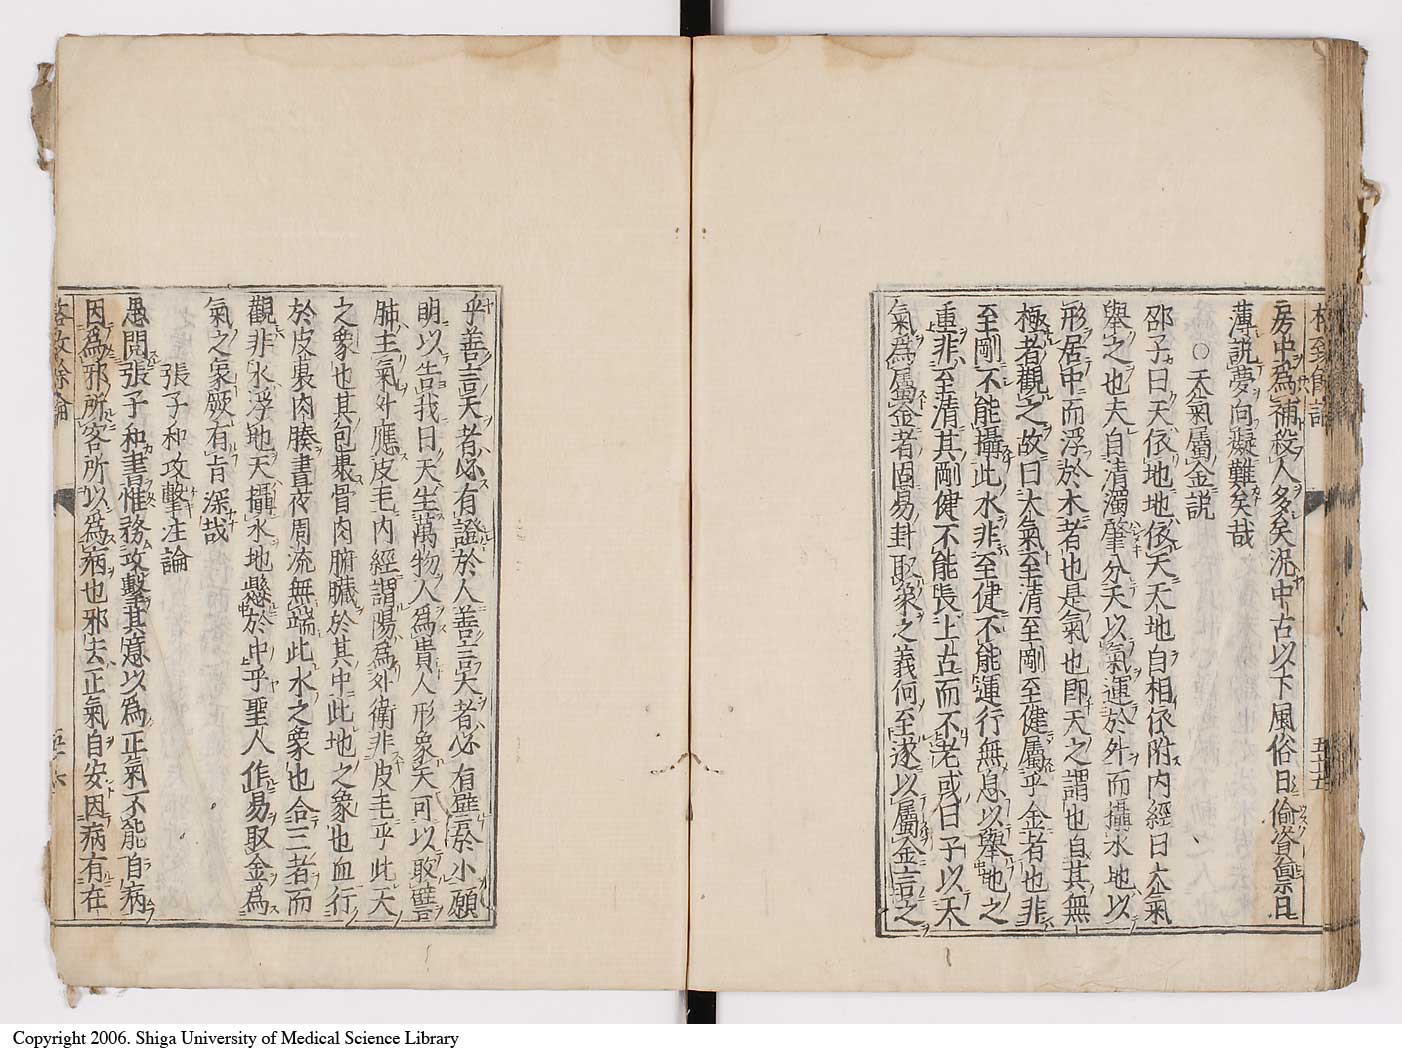 房中為補殺人多矣況中古以下風俗日偷資稟日
薄說夢向癡難矣哉
○天氣屬金說
邵子曰天依地地依天天地自相依附內經曰大氣
舉之也夫自清濁肇分天以氣運於外而攝水地以
形居中而浮於水者也是氣也即天之謂也自其無
極者觀之故曰大氣至清至剛至健屬乎金者也非
至剛不能攝此水非至健不能運行無息以舉地之
重非至清其剛健不能長上古而不老或曰子以天
氣為屬金者固易卦取象之義何至遂以屬金言之
乎善言天者必有證於人善言大者必有譬於小願
明以告我曰天生萬物人為貴人形象天可以取譬
肺主氣外應皮毛內經謂陽為外衛非皮毛乎此天
之象也其包裹骨肉腑臟於其中此地之象也血行
於皮裏肉腠晝夜周流無端此水之象也合三者而
觀非水浮地天攝水地懸於中乎聖人作易取金為
氣之象厥有肯深哉
張子和攻擊注論
愚閱張子和書惟務攻擊其意以為正氣不能自病
因為邪所客所以為病也邪去正氣自安因病有在
格致餘論
Copyright 2006. Shiga University of Medical Science Library